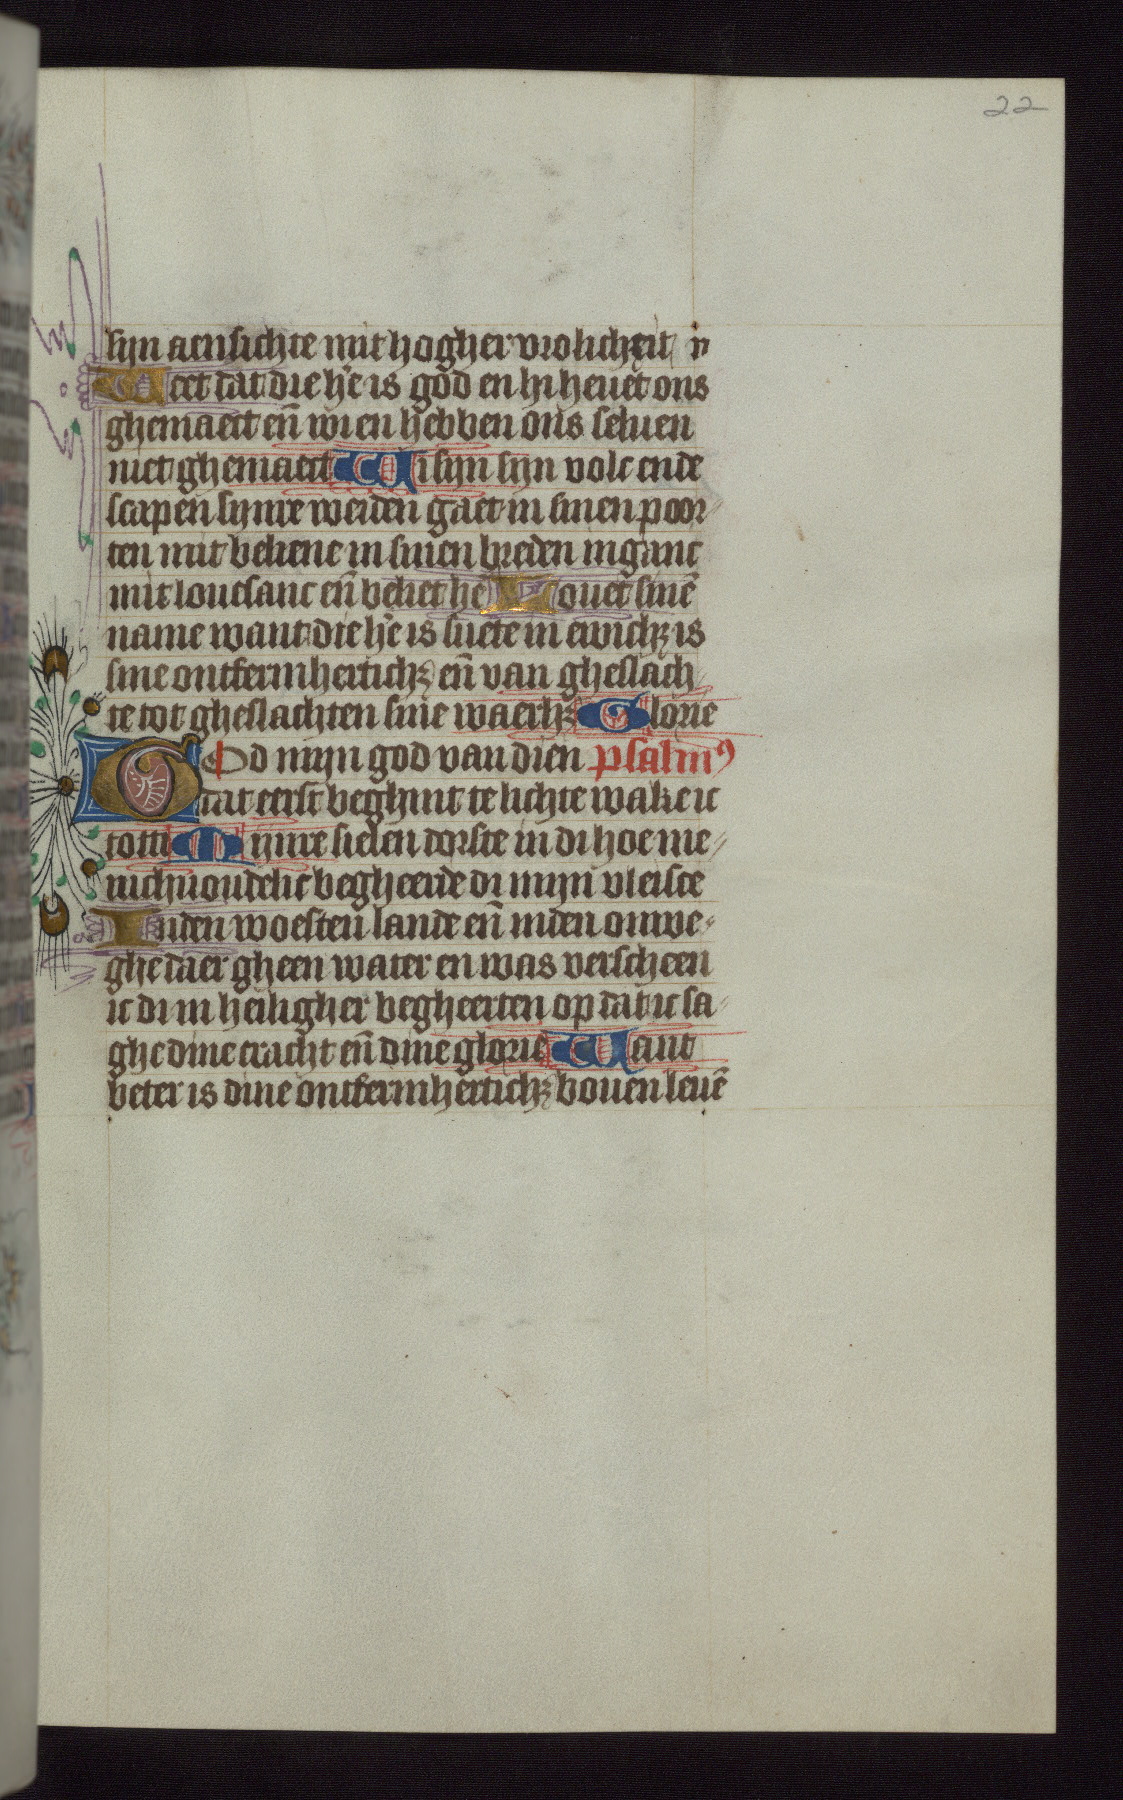 22
sijn aensichte mit hogher vrolicheit
Weet dat die he is god en hi heuet ons
ghemaect en̄ wi en hebben ons seluen
niet ghemaect Wi sijn sijn volc ende
scapen sijnre weiden gaet in sinen poor
ten mit beliene in sinen breden inganc
mit louesanc en̄ beliet he Louet sinē
name want die he is suete in ewichꝫ is
sine ontfermhertichꝫ en̄ van gheslach
te tot gheslachten sine waerhꝫ Glorie
God mijn god van dien psalmꝰ
dat eerst beghint te lichte wake ic
totti Mijnre sielen dorste in di hoe me
nichuoudelic begheerde di mijn vleisce
Inden woesten lande en̄ inden onwe
ghe daer gheen water en was verscheen
ic di in heiligher begheerten op dat ic sa
ghe dine cracht en̄ dine glorie Want
beter is dine ontfermhertichꝫ bouen leuē